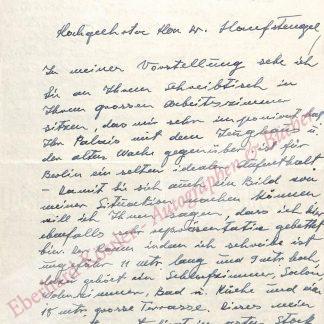 Hochgeehrter Herr v. Hanfstaengel,
In meiner Vorstellung sehe ich
Sie an Ihrem Schreibtisch in
Ihrem grossen Arbeitszimmer
sitzen, das mir sehr imponiert hat.
Ihr Palais mit dem u.
der alten Wache gegenüber ist für
Berlin ein selten idealer Aufenthalt
– Damit Sie sich auch ein Bild von
meiner Situation machen können
will ich Ihnen sagen, dass ich hier
ebenfalls sehr repräsentativ gebettet
bin. Der Raum indem ich schreibe ist
ungefähr 11 mtr lang und 9 mtr hoch,
dazu gehört ein Schlafzimmer, Salon
Wohnzimmer, Bad u. Küche und eine
18 mtr grosse Terrasse. Dieses mein
im ersten Stock
Eberhard Köstler - Autographen & Bücher